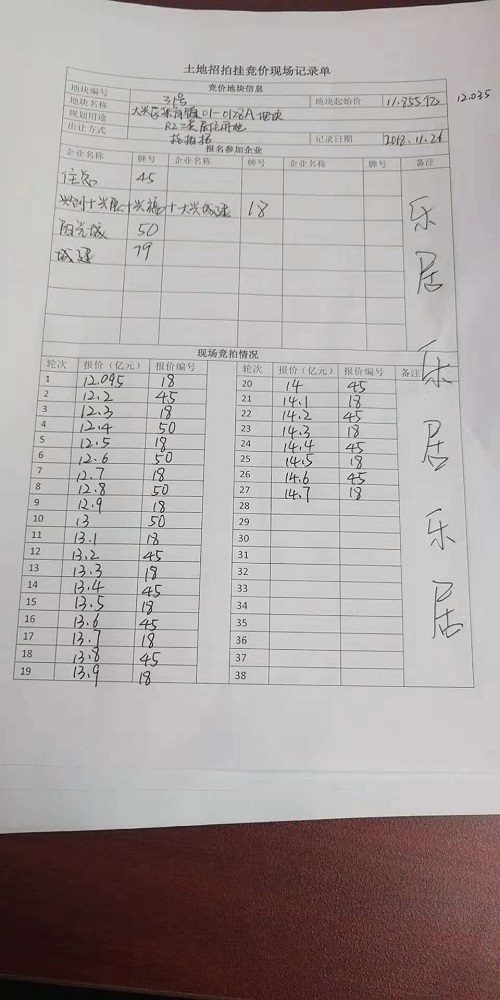 土地招拍挂竞价现场记录单
竞价地块信息
地块编号 31号 地块起始价 11.855亿 12.035
地块名称 大兴区 01-0128A地块
规划用途 R2二类居住用地
出让方式 招拍挂 记录日期 2018.11.26
报名参加企业
企业名称 牌号 企业名称 牌号 企业名称 牌号 备注
住总 45
兴创+兴展+兴福+大兴城建 18
阳光城 50
城建 79
乐居
现场竞拍情况
轮次 报价（亿元） 报价编号 轮次 报价（亿元） 报价编号 备注
1 12.095 18 20 14 45
2 12.2 45 21 14.1 18
3 12.3 18 22 14.2 45
4 12.4 50 23 14.3 18
5 12.5 18 24 14.4 45
6 12.6 50 25 14.5 18
7 12.7 18 26 14.6 45
8 12.8 50 27 14.7 18
9 12.9 18 28
10 13 50 29
11 13.1 18 30
12 13.2 45 31
13 13.3 18 32
14 13.4 45 33
15 13.5 18 34
16 13.6 45 35
17 13.7 18 36
18 13.8 45 37
19 13.9 18 38
乐居
乐居